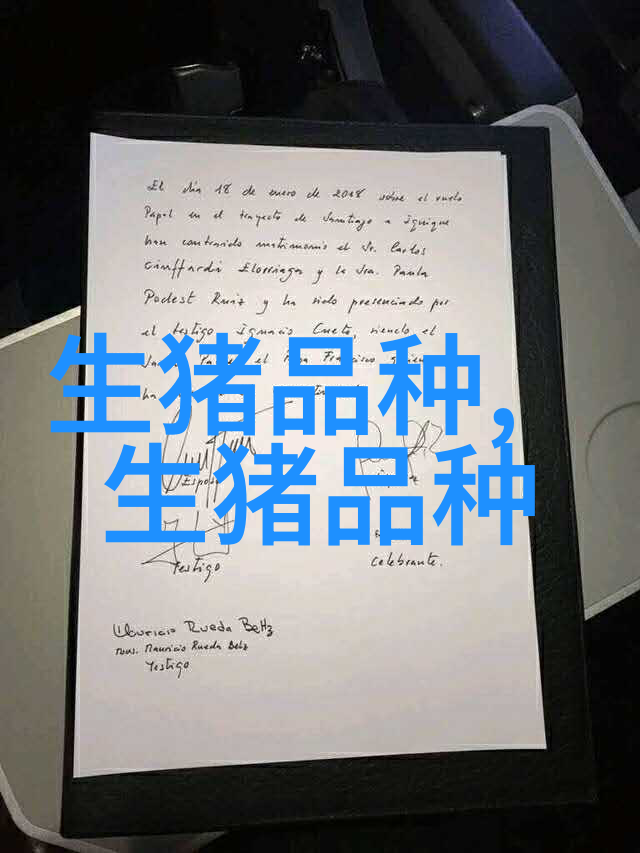 El día 18 de enero de 2018 sobre el vuelo
Papal en el trayecto de Santiago a Iquique
han contraido matrimonio el Sr. Carlos
Ciuffardi Elorriaga y la Sra. Paula
Podest Ruiz y ha sido presenciado por
el testigo Ignacio Cueto, siendo el
el Papa Francisco
ha
生猪品种,
生猪品种
Esposo
Testigo
Celebrante.
Mauricio Rueda Beltz
Mons. Mauricio Rueda Beltz
Testigo